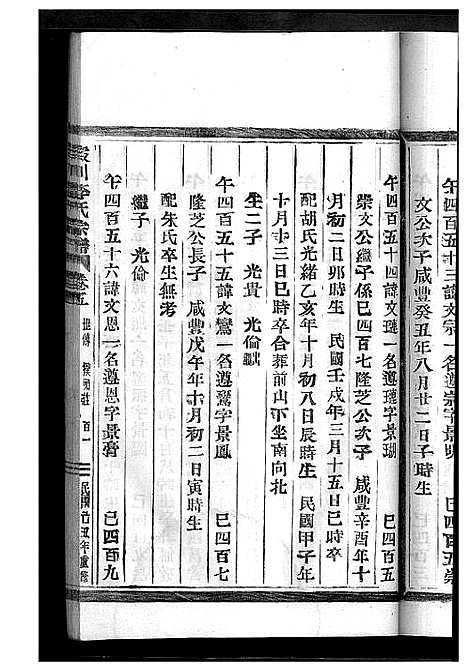 午四百五十三諱文宗一名遵崇字景
文公次子咸豐癸丑年八月廿二日子時生
午四百五十四諱文璉一名遵璉字景瑚 巳四百五
崇文公繼子係巳四百七隆芝公次子 咸豐辛酉年十
月初二日卯時生 民國壬戌年三月十五日巳時卒
配胡氏光緒乙亥年十月初八日辰時生 民國甲子年
十月十三日巳時卒合葬前山下坐南向北
生二子 光貴 光倫
午四百五十五諱文鸞一名遵鸞字景鳳 巳四百七
隆芝公長子 咸豐戊午年十月初二日寅時生
配朱氏卒生無考
繼子 光倫
午四百五十六諱文恩一名遵恩字景膏 巳四百九
李氏宗譜 卷五 世傳 百一 民國 丑年重修